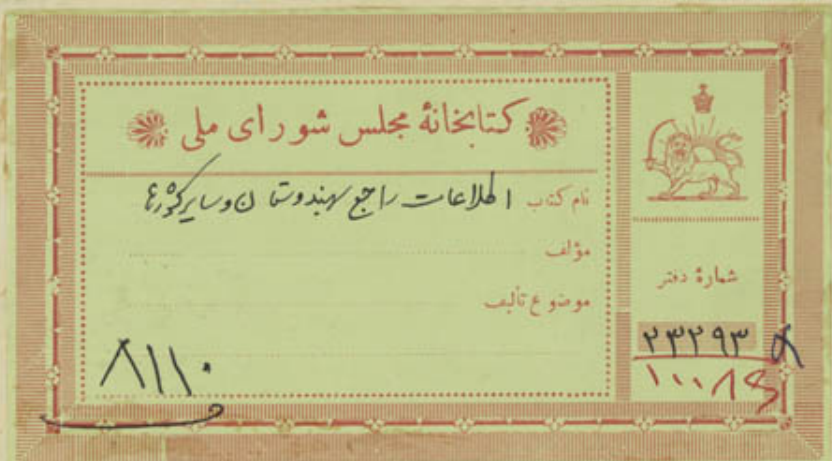 کتابخانهٔ مجلس شورای ملی
نام کتاب اطلاعات راجع بهندوستان وسایر کشورها
مؤلف
موضوع تألیف
۸۱۱۰
شمارهٔ دفتر
۲۳۲۹۳